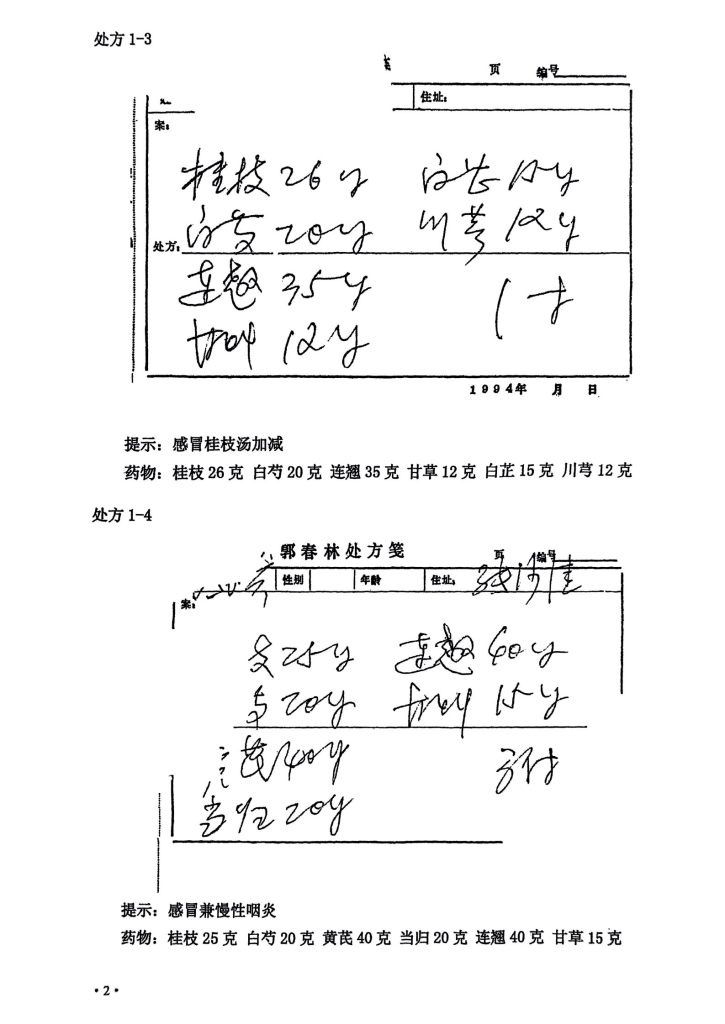 处方 1-3
页 编号
住址：
案：
桂枝 26g 白芷 15g
白芍 20g 川芎 12g
处方：
连翘 35g 1付
甘草 12g
1994年 月 日
提示：感冒桂枝汤加减
药物：桂枝 26 克 白芍 20 克 连翘 35 克 甘草 12 克 白芷 15 克 川芎 12 克
处方 1-4
郭春林处方笺 页 编号
性别 年龄 住址：
案：
支 25g 连翘 40g
芍 20g 甘草 15g
芪 40g
当归 20g
提示：感冒兼慢性咽炎
药物：桂枝 25 克 白芍 20 克 黄芪 40 克 当归 20 克 连翘 40 克 甘草 15 克
·2·